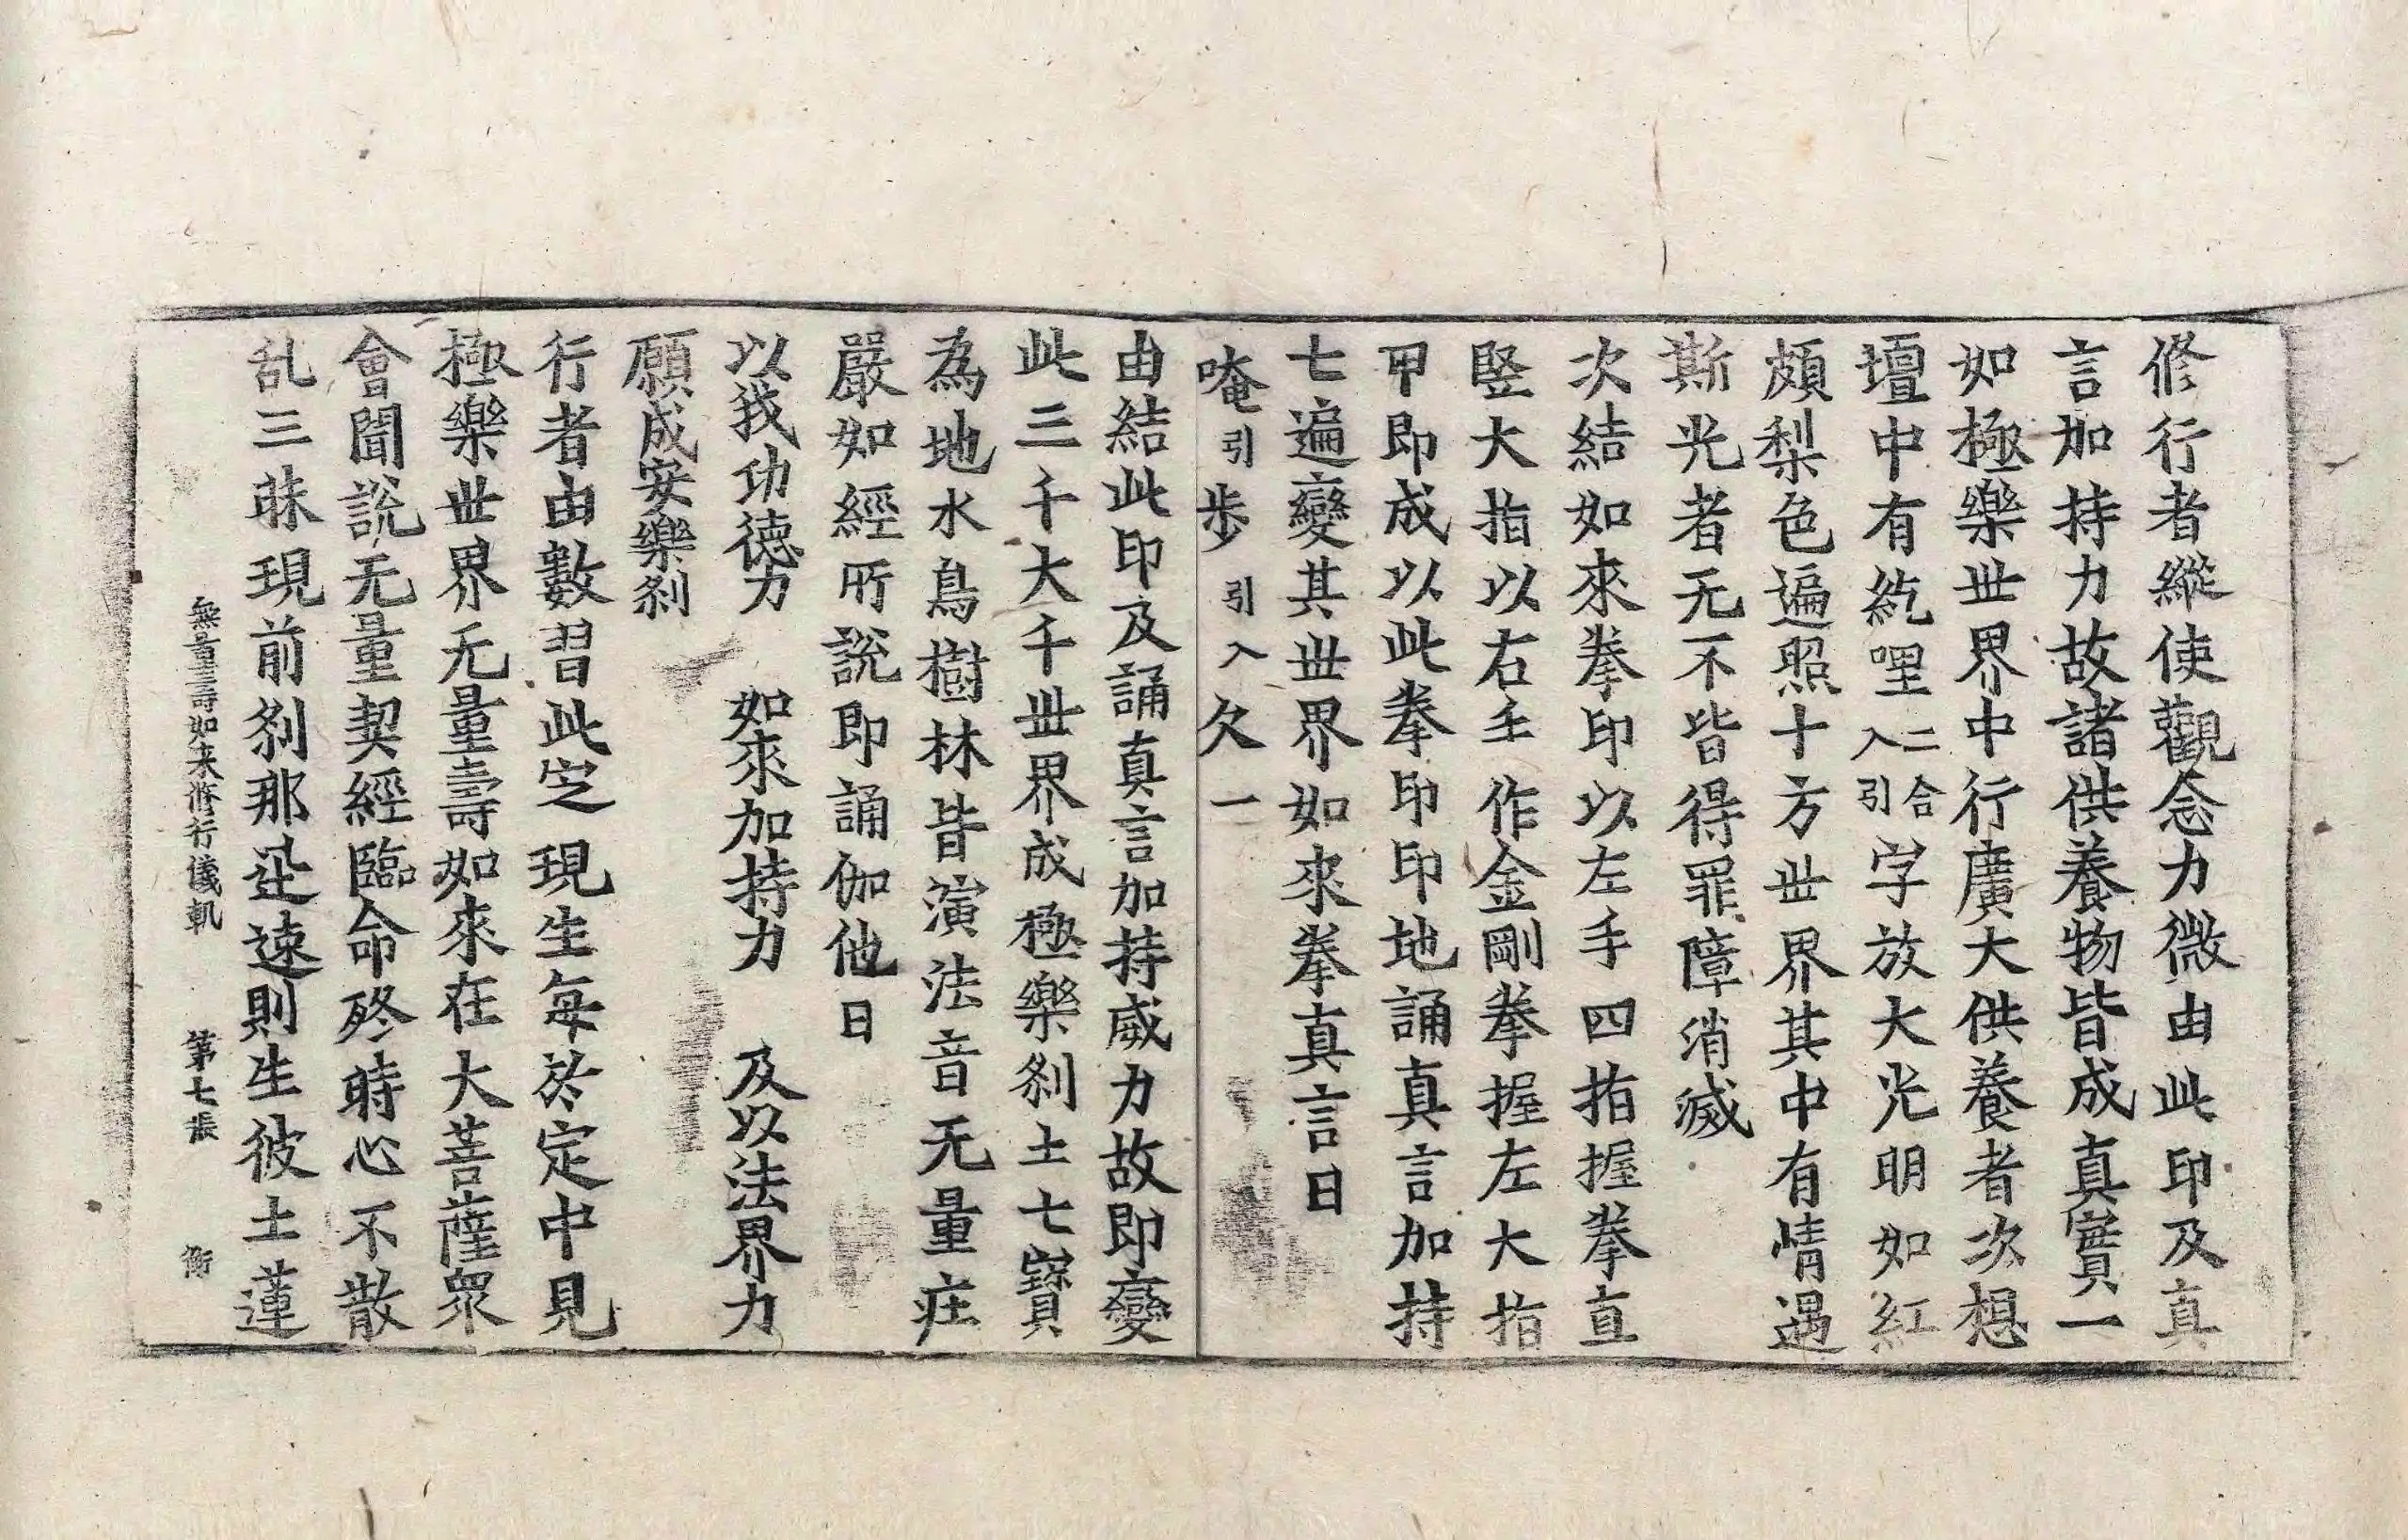 修行者縱使觀念力微由此印及真
言加持力故諸供養物皆成真實一
如極樂世界中行廣大供養者次想
壇中有紇哩二合引入字放大光明如紅
頗梨色遍照十方世界其中有情遇
斯光者无不皆得罪障消滅
次結如來拳印以左手四指握拳直
竪大指以右手作金剛拳握左大指
甲即成以此拳印印地誦真言加持
七遍變其世界如來拳真言曰
唵引步引入欠一
由結此印及誦真言加持威力故即變
此三千大千世界成極樂刹土七寶
為地水鳥樹林皆演法音无量庄
嚴如經所說即誦伽他曰
以我功德力　如來加持力　及以法界力
願成安樂刹
行者由數習此定現生每於定中見
極樂世界无量壽如來在大菩薩衆
會聞說无量契經臨命終時心不散
乱三昧現前刹那迅速則生彼土蓮
無量壽如来修行儀軌　第七張　衝